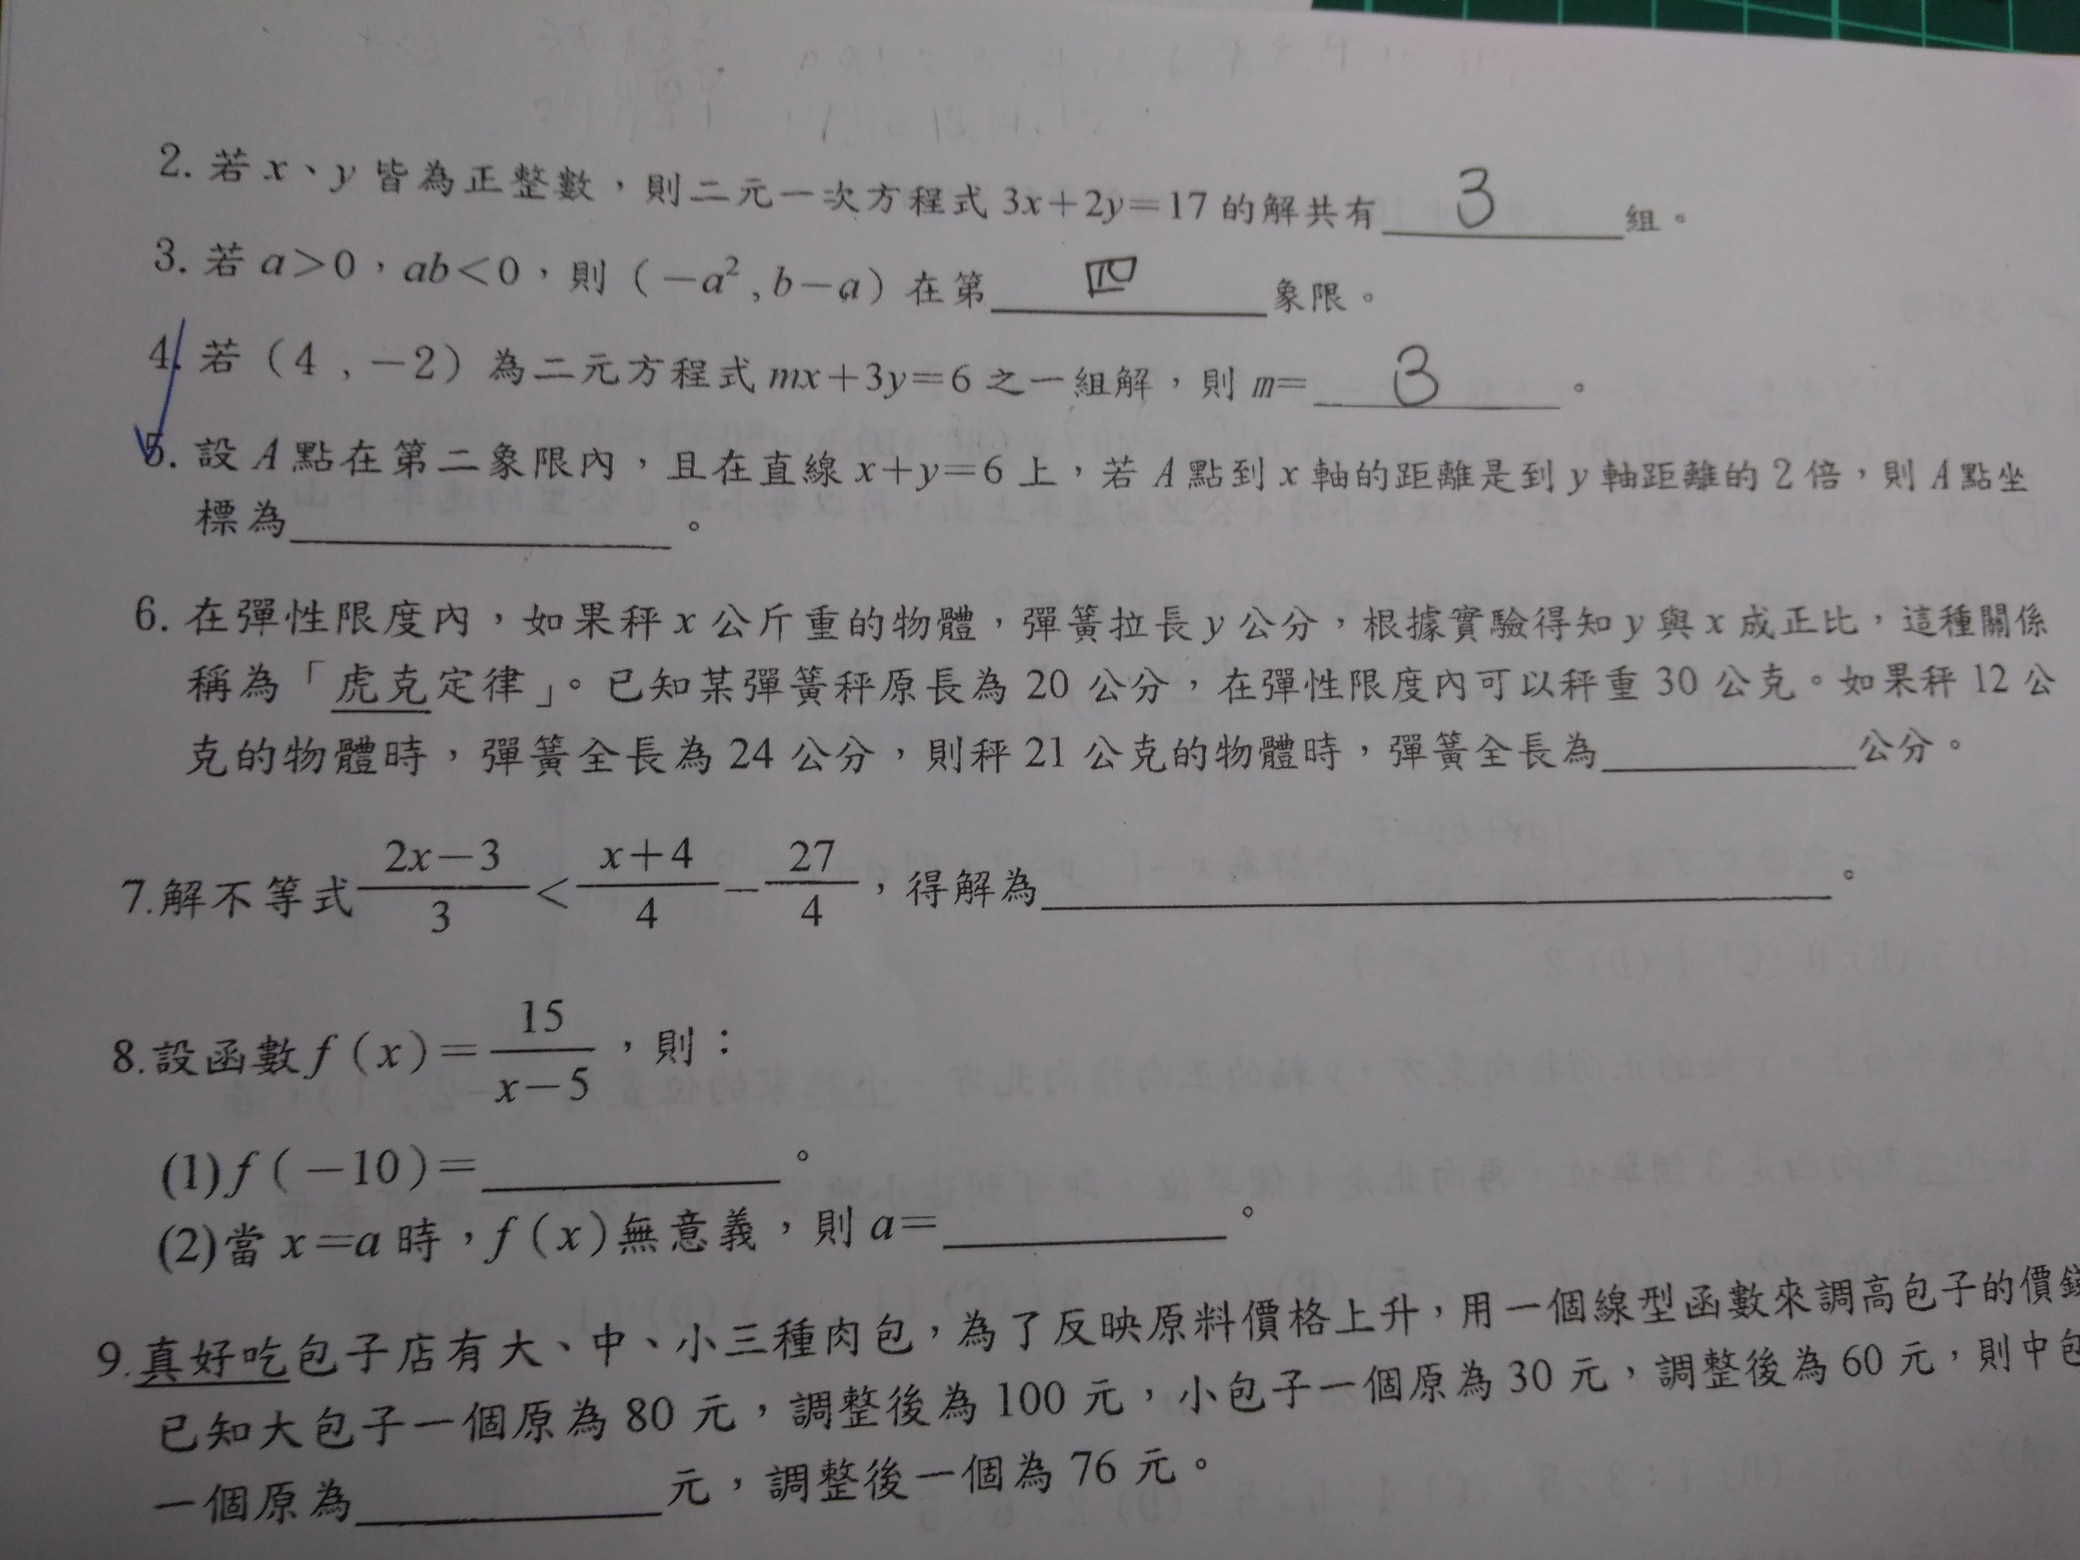 2. 若 x、y 皆為正整數，則二元一次方程式 3x＋2y＝17 的解共有 3 組。
3. 若 a＞0，ab＜0，則（－a²，b－a）在第 四 象限。
4. 若（4，－2）為二元方程式 mx＋3y＝6 之一組解，則 m＝ 3 。
5. 設 A 點在第二象限內，且在直線 x＋y＝6 上，若 A 點到 x 軸的距離是到 y 軸距離的 2 倍，則 A 點坐
標為＿＿＿＿＿＿。
6. 在彈性限度內，如果秤 x 公斤重的物體，彈簧拉長 y 公分，根據實驗得知 y 與 x 成正比，這種關係
稱為「虎克定律」。已知某彈簧秤原長為 20 公分，在彈性限度內可以秤重 30 公克。如果秤 12 公
克的物體時，彈簧全長為 24 公分，則秤 21 公克的物體時，彈簧全長為＿＿＿＿公分。
7.解不等式 (2x－3)/3＜(x＋4)/4－27/4，得解為＿＿＿＿＿＿＿＿。
8.設函數 f（x）＝15/(x－5)，則：
(1) f（－10）＝＿＿＿＿。
(2)當 x＝a 時，f（x）無意義，則 a＝＿＿＿＿。
9.真好吃包子店有大、中、小三種肉包，為了反映原料價格上升，用一個線型函數來調高包子的價
已知大包子一個原為 80 元，調整後為 100 元，小包子一個原為 30 元，調整後為 60 元，則中包
一個原為＿＿＿＿元，調整後一個為 76 元。